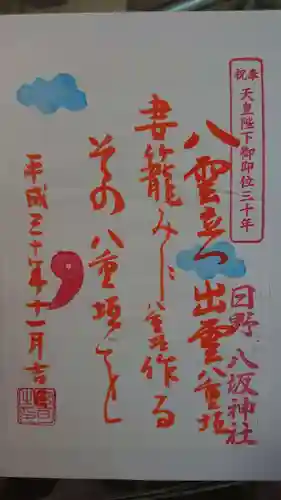 奉祝 天皇陛下御即位三十年
日野 八坂神社
八雲立つ出雲八重垣
妻籠みに八重垣作る
その八重垣を
平成三十年十一月吉